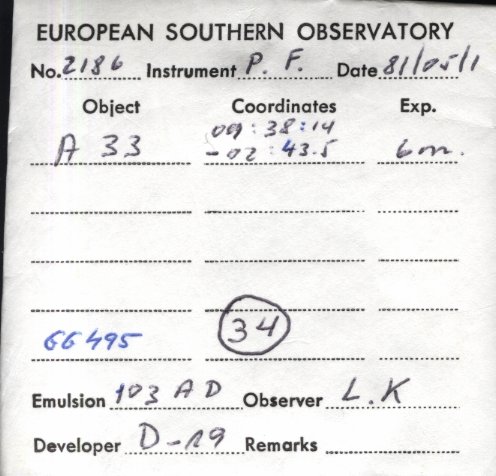 EUROPEAN SOUTHERN OBSERVATORY
No. 2186 Instrument P. F. Date 81/05/1
Object Coordinates Exp.
09:38:14
A 33 -02:43.5 6m.
66495 34
Emulsion 103 A D Observer L.K
Developer D-19 Remarks